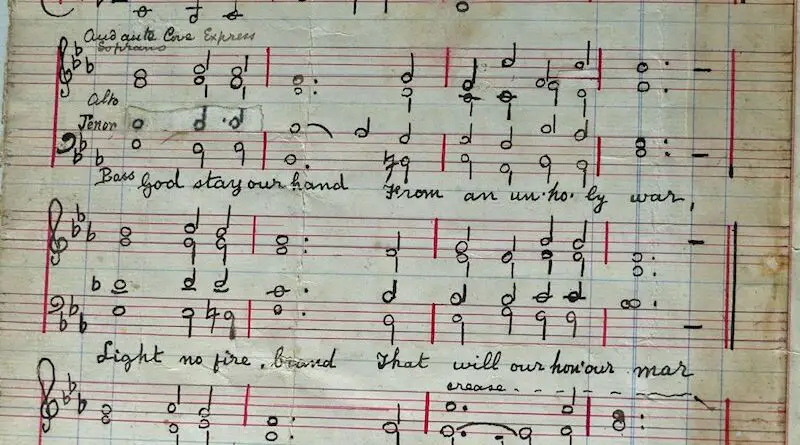 Andante Con Express
Soprano
Alto
Tenor
Bass God stay our hand From an un-ho-ly war,
Light no fire, brand That will our hon'our mar
crease - - - - -